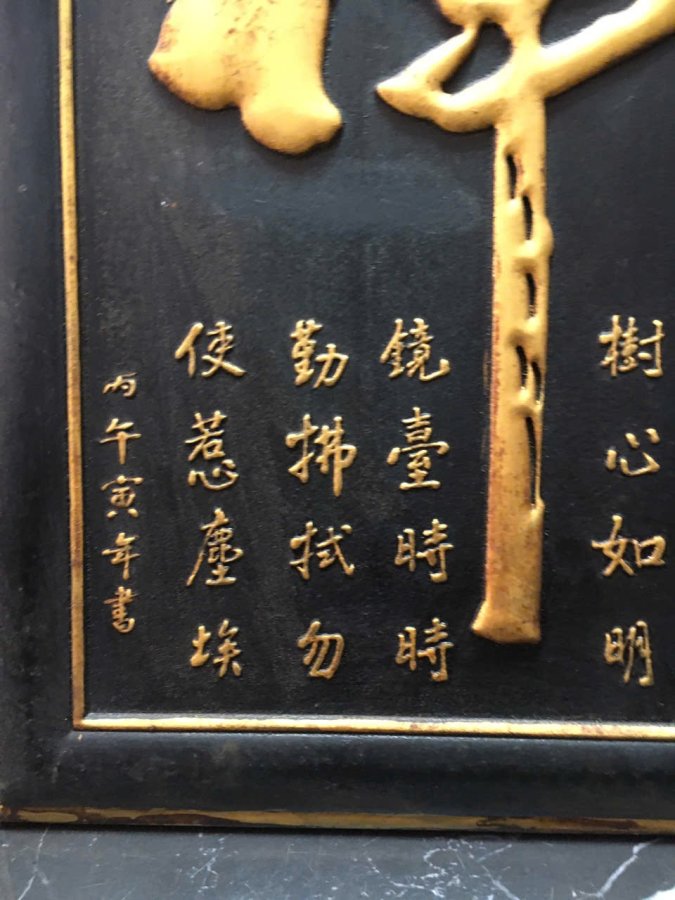 樹心如明
鏡臺時時
勤拂拭勿
使惹塵埃
丙午寅年書